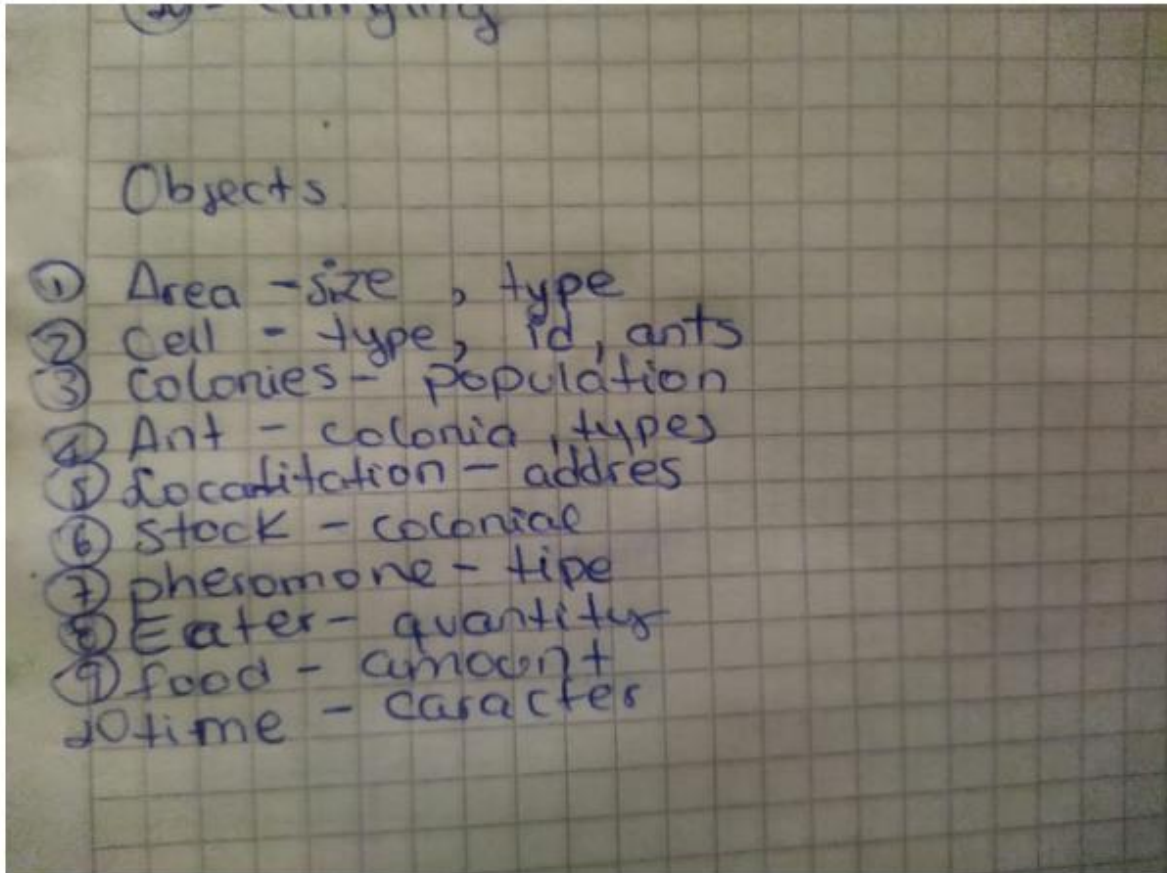 Objects
① Area - size, type
② Cell - type, id, ants
③ Colonies - population
④ Ant - colonia, types
⑤ Localitation - addres
⑥ Stock - colonial
⑦ pheromone - tipe
⑧ Eater - quantity
⑨ food - amount
10 time - caracter